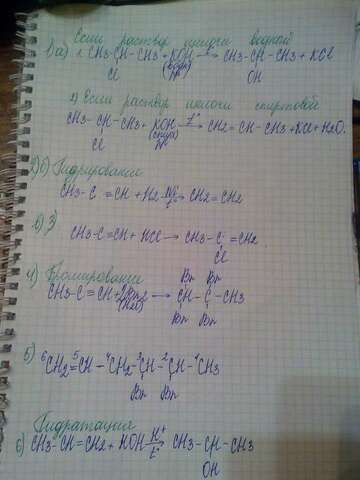 Если раствор щелочи водной
1) а) 1. CH3-CH-CH3 + KOH → CH3-CH-CH3 + KCl
(водн)
Cl OH
2) Если раствор щелочи спиртовой
CH3-CH-CH3 + KOH t° → CH2=CH-CH3+KCl+H2O.
(спирт)
Cl
2) б) Гидрирование
CH3-C≡CH + H2 Ni t° → CH2=CH2
в) 3)
CH3-C≡CH + HCl → CH3-C=CH2
Cl
4) Бромирование
Br Br
CH3-C≡CH+2Br2 → CH-C-CH3
Br Br
5) ⁶CH2=⁵CH-⁴CH2-³CH-²CH-¹CH3
Br Br
Гидратация
6) CH3-CH=CH2 + HOH H⁺ t° → CH3-CH-CH3
OH